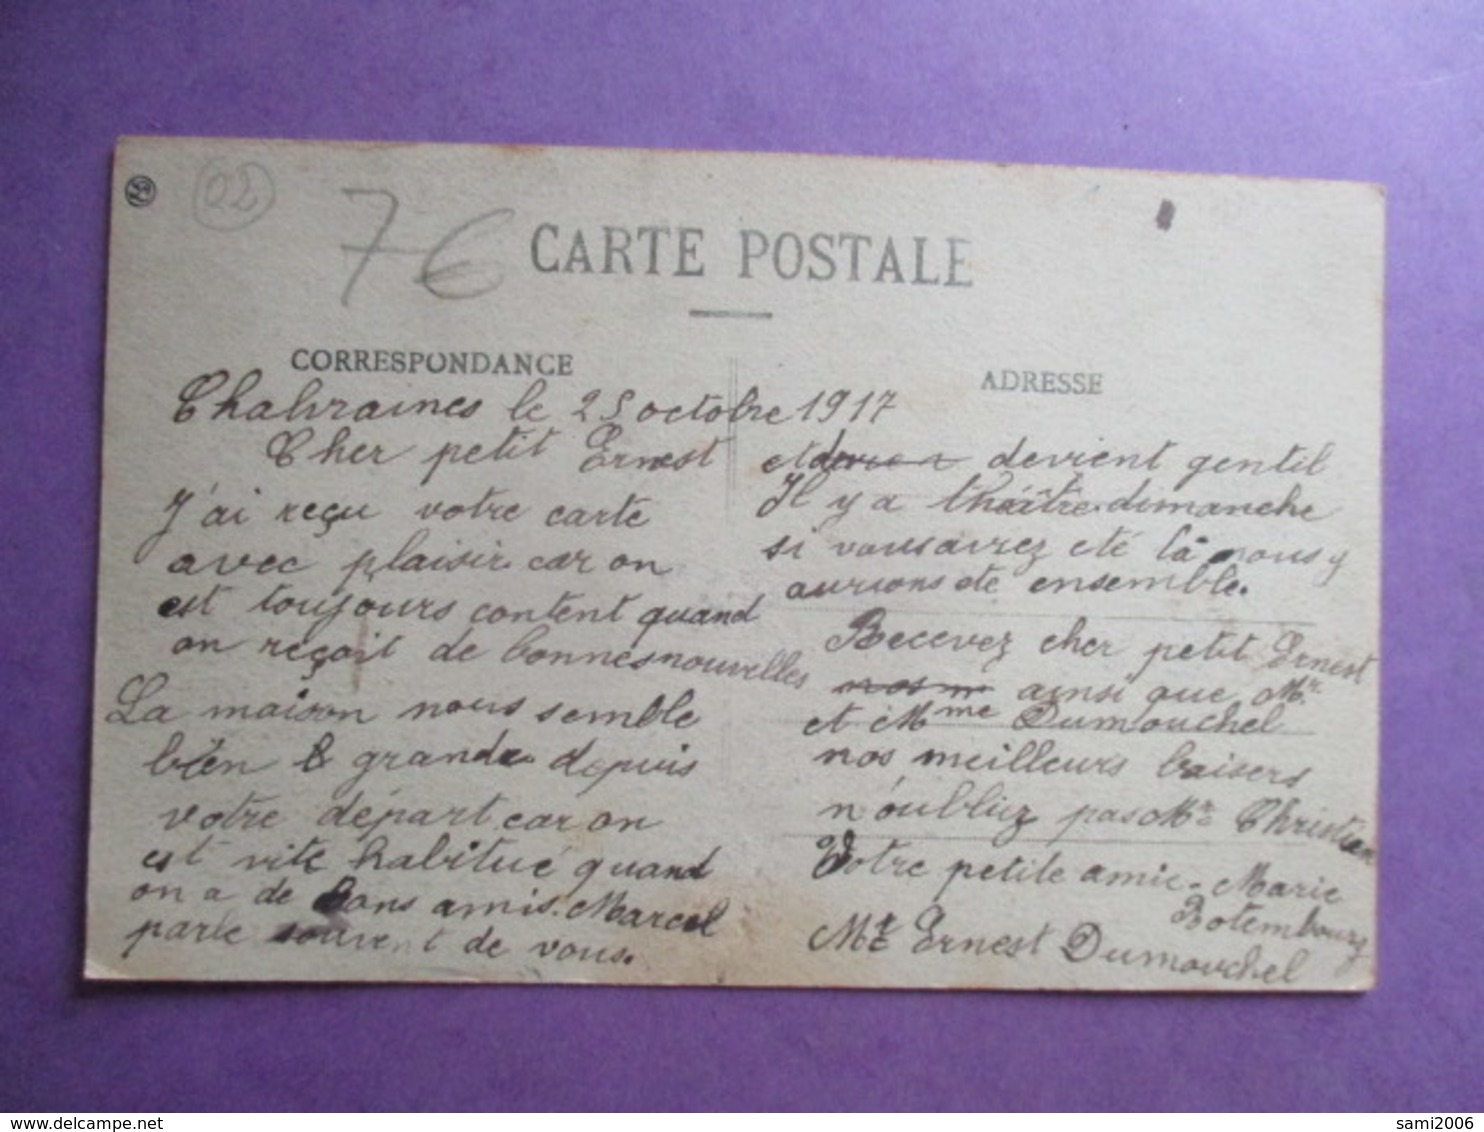 02
7€
CARTE POSTALE
CORRESPONDANCE
Chabraines le 25 octobre 1917
Cher petit Ernest
J'ai reçu votre carte
avec plaisir car on
est toujours content quand
on reçoit de bonnes nouvelles
La maison nous semble
bien grande depuis
votre départ car on
est vite habitué quand
on a de bons amis. Marcel
parle souvent de vous.
ADRESSE
et devient gentil
Il y a théâtre dimanche
si vous aviez eté là nous y
aurions ete ensemble.
Recevez cher petit Ernest
ainsi que Mr.
et Mme Dumouchel
nos meilleurs baisers
n'oubliez pas Mr Christian
Votre petite amie. Marie
Botembourg
Mr Ernest Dumouchel
sami2006